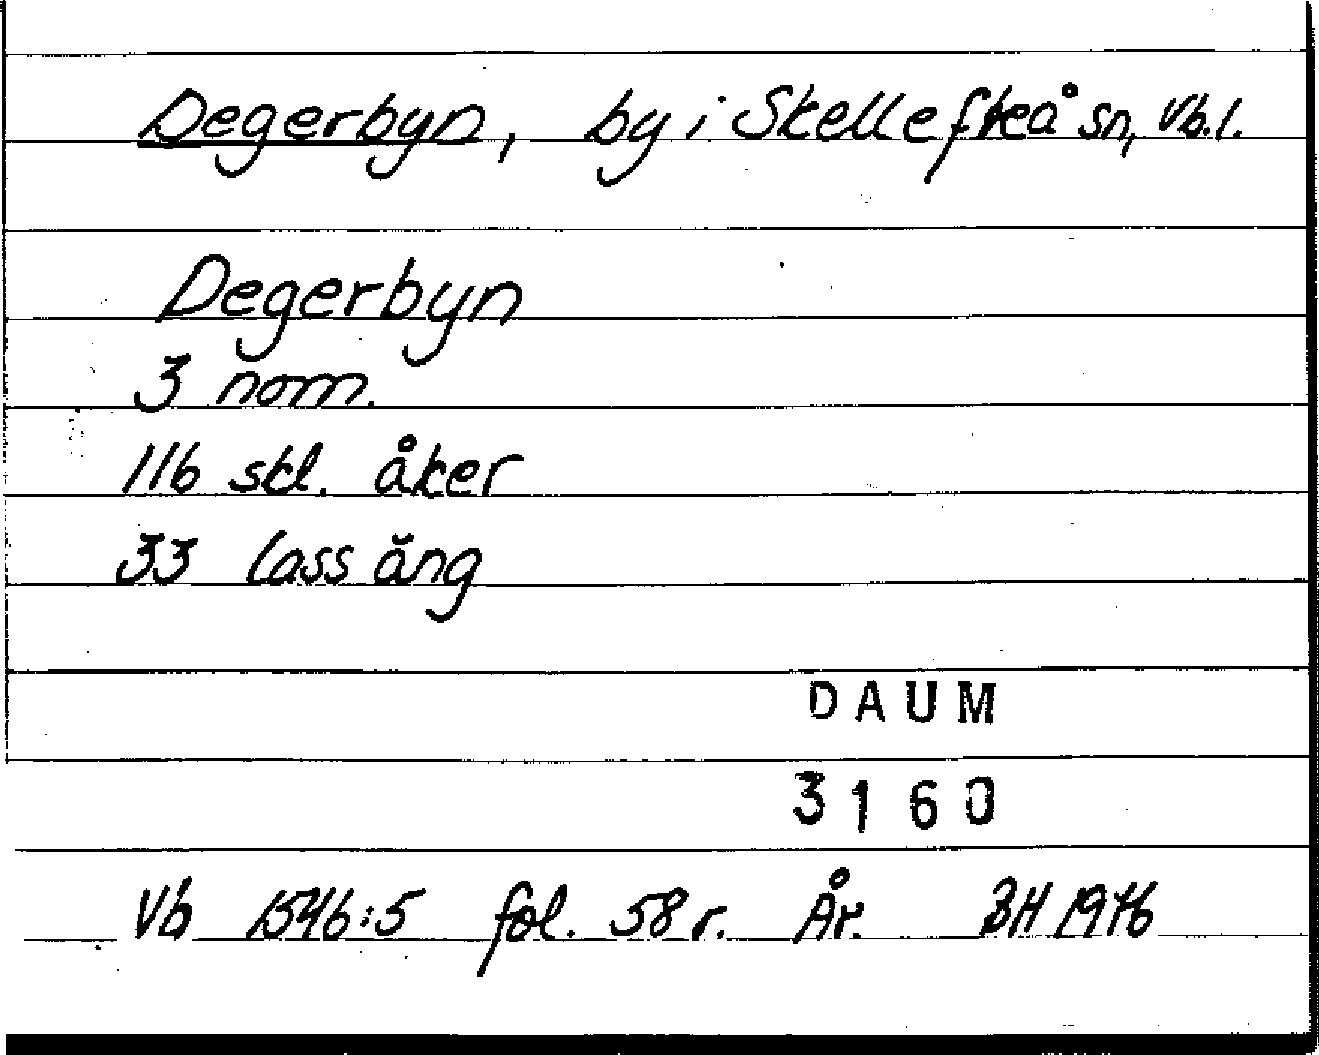 Degerbyn, by i Skellefteå sn, Vb.l.
Degerbyn
3 nom.
116 skl. åker
33 lass äng
DAUM
3160
Vb 1546:5 fol. 58 r. År. BH 1976